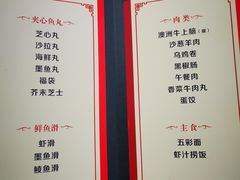 夹心鱼丸
芝心丸
沙拉丸
海鲜丸
墨鱼丸
福袋
芥末芝士
鲜鱼滑
虾滑
墨鱼滑
鲮鱼滑
肉类
澳洲牛上脑（童）
沙葱羊肉
乌鸡卷
黑椒肠
午餐肉
香菜牛肉丸
蛋饺
主食
五彩面
虾汁捞饭